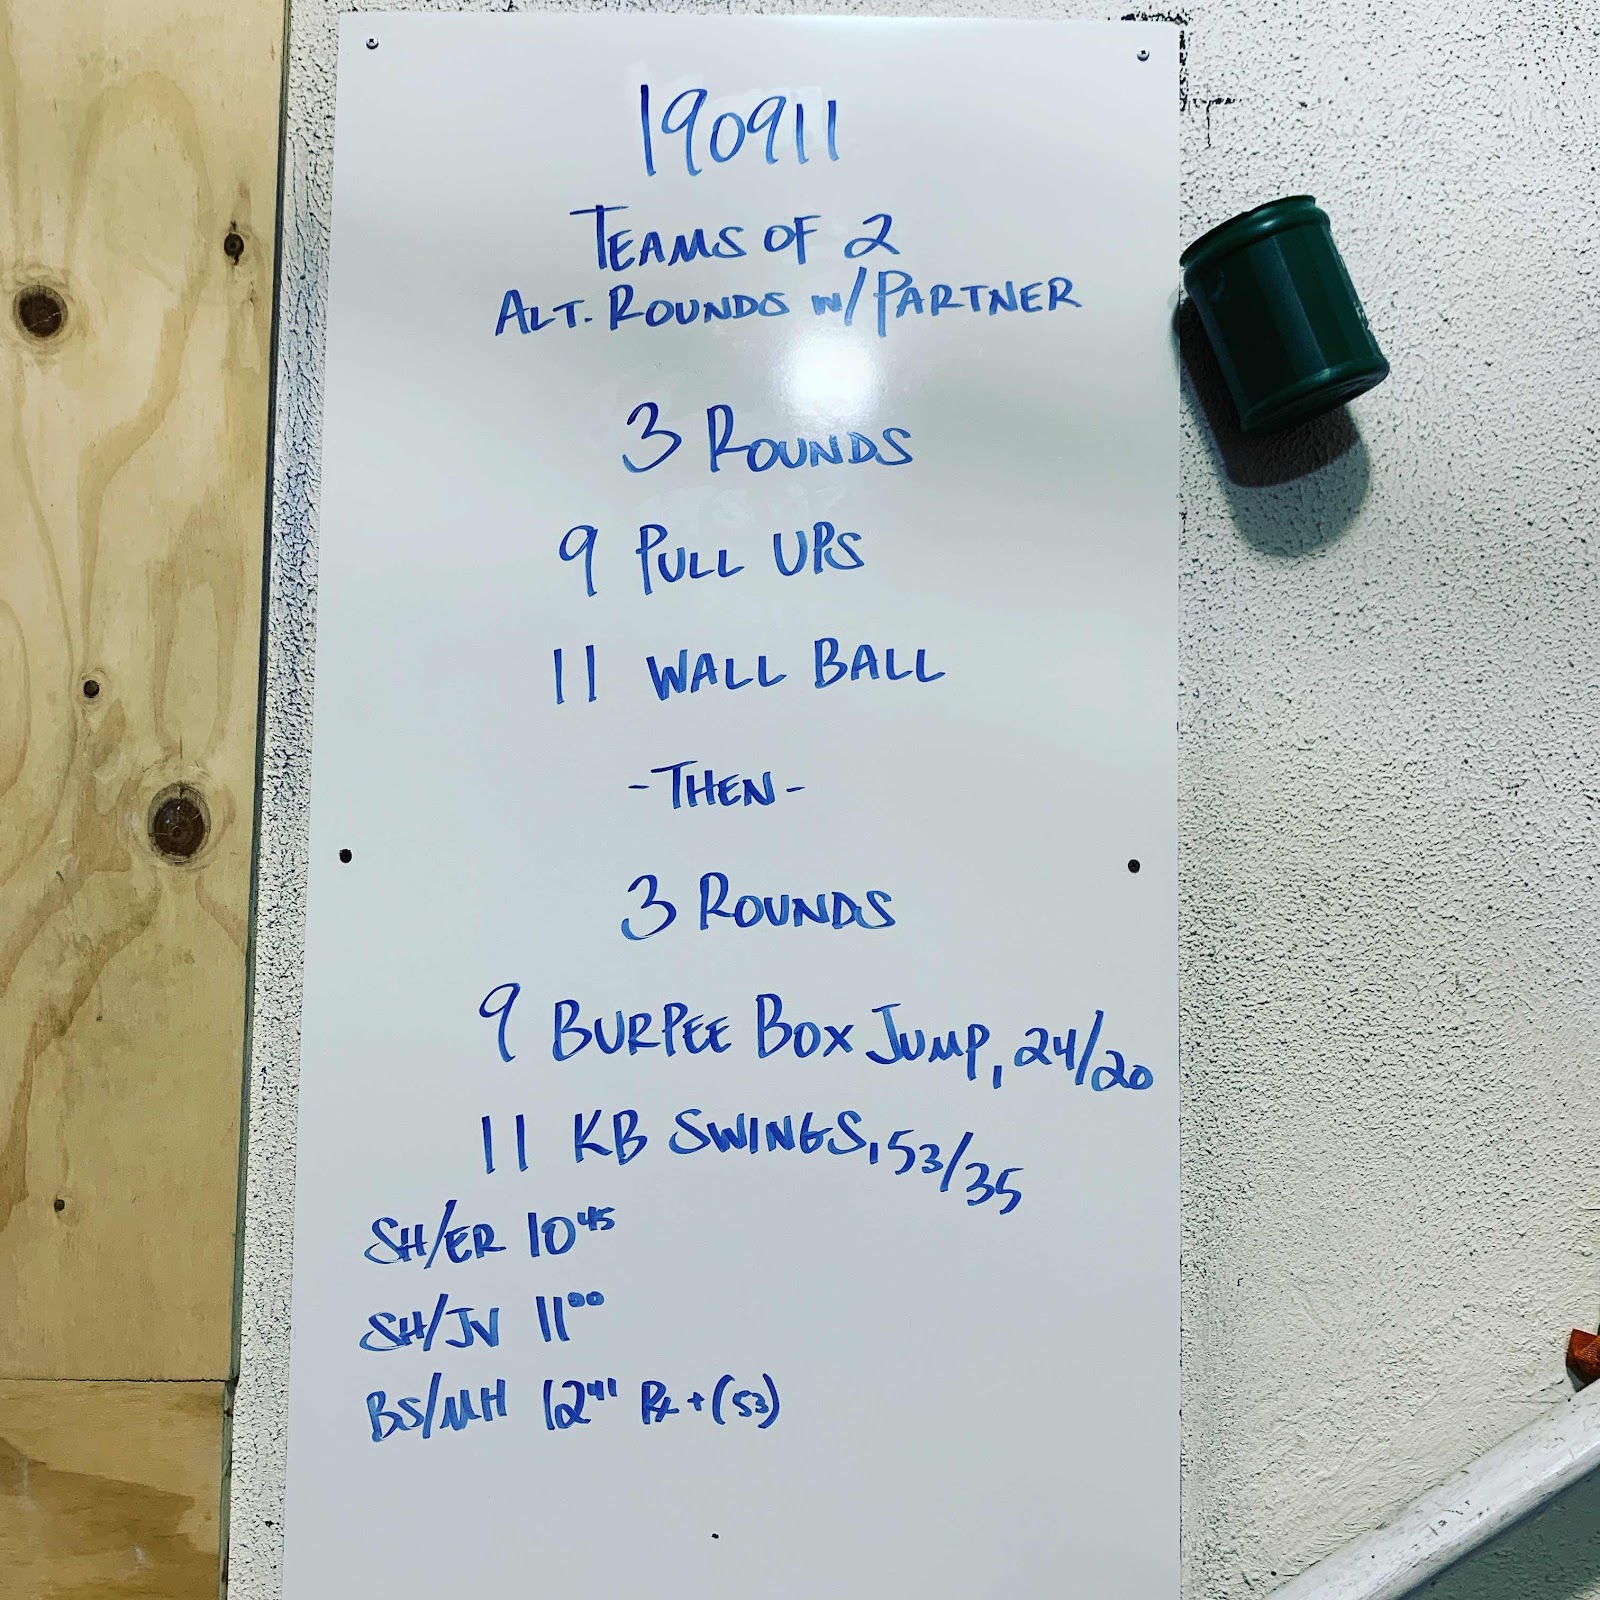 190911
TEAMS OF 2
ALT. ROUNDS W/PARTNER
3 ROUNDS
9 PULL UPS
11 WALL BALL
-THEN-
3 ROUNDS
9 BURPEE BOX JUMP, 24/20
11 KB SWINGS, 53/35
SH/ER 10 45
SH/JV 11 00
BS/MH 12 41 Rx + (53)